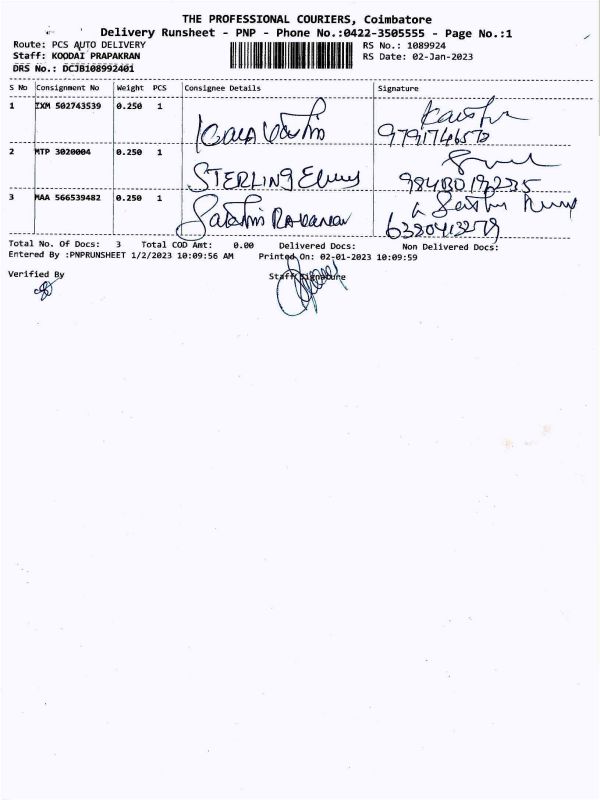 THE PROFESSIONAL COURIERS, Coimbatore
Delivery Runsheet - PNP - Phone No.:0422-3505555 - Page No.:1
Route: PCS AUTO DELIVERY
RS No.: 1089924
Staff: KOODAI PRAPAKRAN
RS Date: 02-Jan-2023
DRS No.: DCJB108992401
S No Consignment No Weight PCS Consignee Details Signature
1 IXM 502743539 0.250 1
9791746570
2 MTP 3020004 0.250 1
STERLING
3 MAA 566539482 0.250 1
6380413279
Total No. Of Docs: 3 Total COD Amt: 0.00 Delivered Docs: Non Delivered Docs:
Entered By :PNPRUNSHEET 1/2/2023 10:09:56 AM Printed On: 02-01-2023 10:09:59
Verified By
Staff Signature